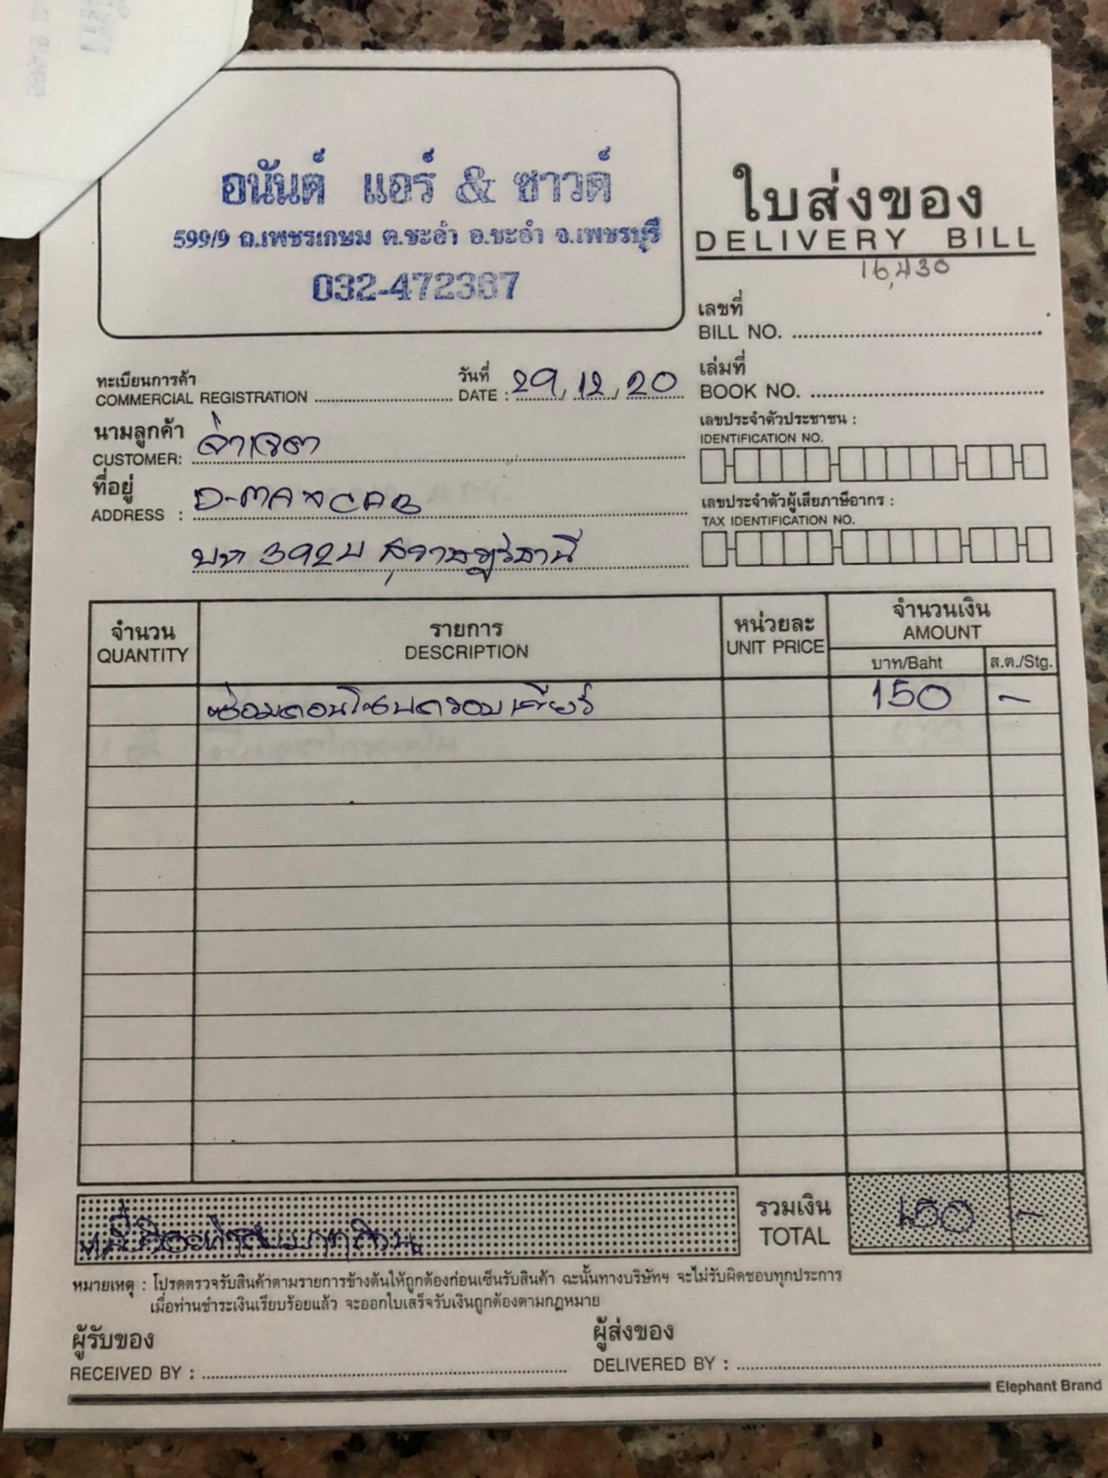 อนันต์ แอร์ & ซาวด์
599/9 ถ.เพชรเกษม ต.ชะอำ อ.ชะอำ จ.เพชรบุรี
032-472367
ใบส่งของ
DELIVERY BILL
16,430
เลขที่
BILL NO.
ทะเบียนการค้า
COMMERCIAL REGISTRATION
วันที่
DATE : 29, 12, 20
เล่มที่
BOOK NO.
นามลูกค้า
CUSTOMER: จ่าเจตา
เลขประจำตัวประชาชน :
IDENTIFICATION NO.
ที่อยู่
ADDRESS : D-MAX CAB
บท 392 สุราษฎร์ธานี
เลขประจำตัวผู้เสียภาษีอากร :
TAX IDENTIFICATION NO.
จำนวน
QUANTITY
รายการ
DESCRIPTION
หน่วยละ
UNIT PRICE
จำนวนเงิน
AMOUNT
บาท/Baht ส.ต./Stg.
ซ่อมคอนโซนครอบเกียร์ 150 –
หนึ่งร้อยห้าสิบบาทถ้วน
รวมเงิน
TOTAL 150 –
หมายเหตุ : โปรดตรวจรับสินค้าตามรายการข้างต้นให้ถูกต้องก่อนเซ็นรับสินค้า ฉะนั้นทางบริษัทฯ จะไม่รับผิดชอบทุกประการ
เมื่อท่านชำระเงินเรียบร้อยแล้ว จะออกใบเสร็จรับเงินถูกต้องตามกฎหมาย
ผู้รับของ
RECEIVED BY :
ผู้ส่งของ
DELIVERED BY :
Elephant Brand